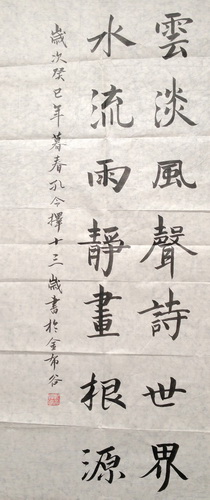 雲淡風聲詩世界
水流雨靜畫根源
歲次癸巳年暮春孔令擇十三歲書於金布谷